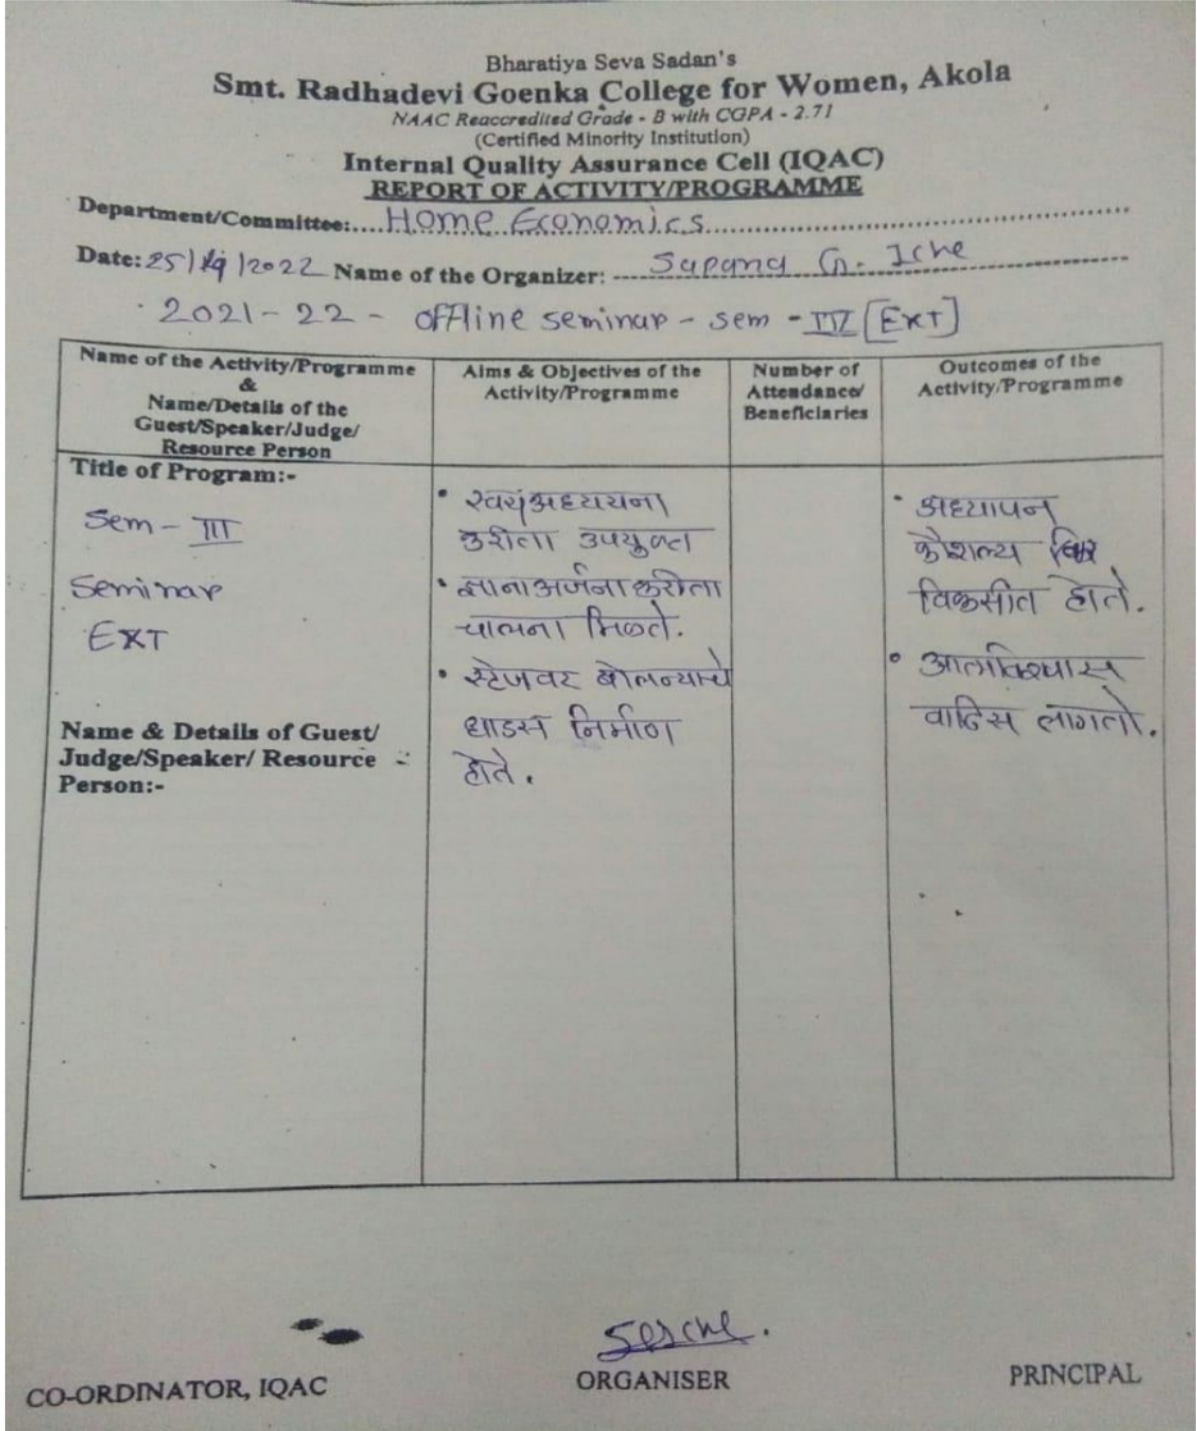 Bharatiya Seva Sadan's
Smt. Radhadevi Goenka College for Women, Akola
NAAC Reaccredited Grade - B with CGPA - 2.71
(Certified Minority Institution)
Internal Quality Assurance Cell (IQAC)
REPORT OF ACTIVITY/PROGRAMME
Department/Committee:....Home Economics
Date: 25/ /2022 Name of the Organizer: Sapana G.
2021-22 - offline seminar - sem - III [EXT]
Name of the Activity/Programme
&
Name/Details of the
Guest/Speaker/Judge/
Resource Person
Aims & Objectives of the
Activity/Programme
Number of
Attendance/
Beneficiaries
Outcomes of the
Activity/Programme
Title of Program:-
Sem - III
Seminar
EXT
Name & Details of Guest/
Judge/Speaker/ Resource
Person:-
• स्वयंअध्ययना
करीता उपयुक्त
• ज्ञानाअर्जनाकरीता
चालना मिळते.
• स्टेजवर बोलन्याचे
धाडस निर्माण
होते.
• अध्यापन
कौशल्य
विकसीत होते.
• आत्मविश्वास
वाढिस लागतो.
ORGANISER
CO-ORDINATOR, IQAC
PRINCIPAL